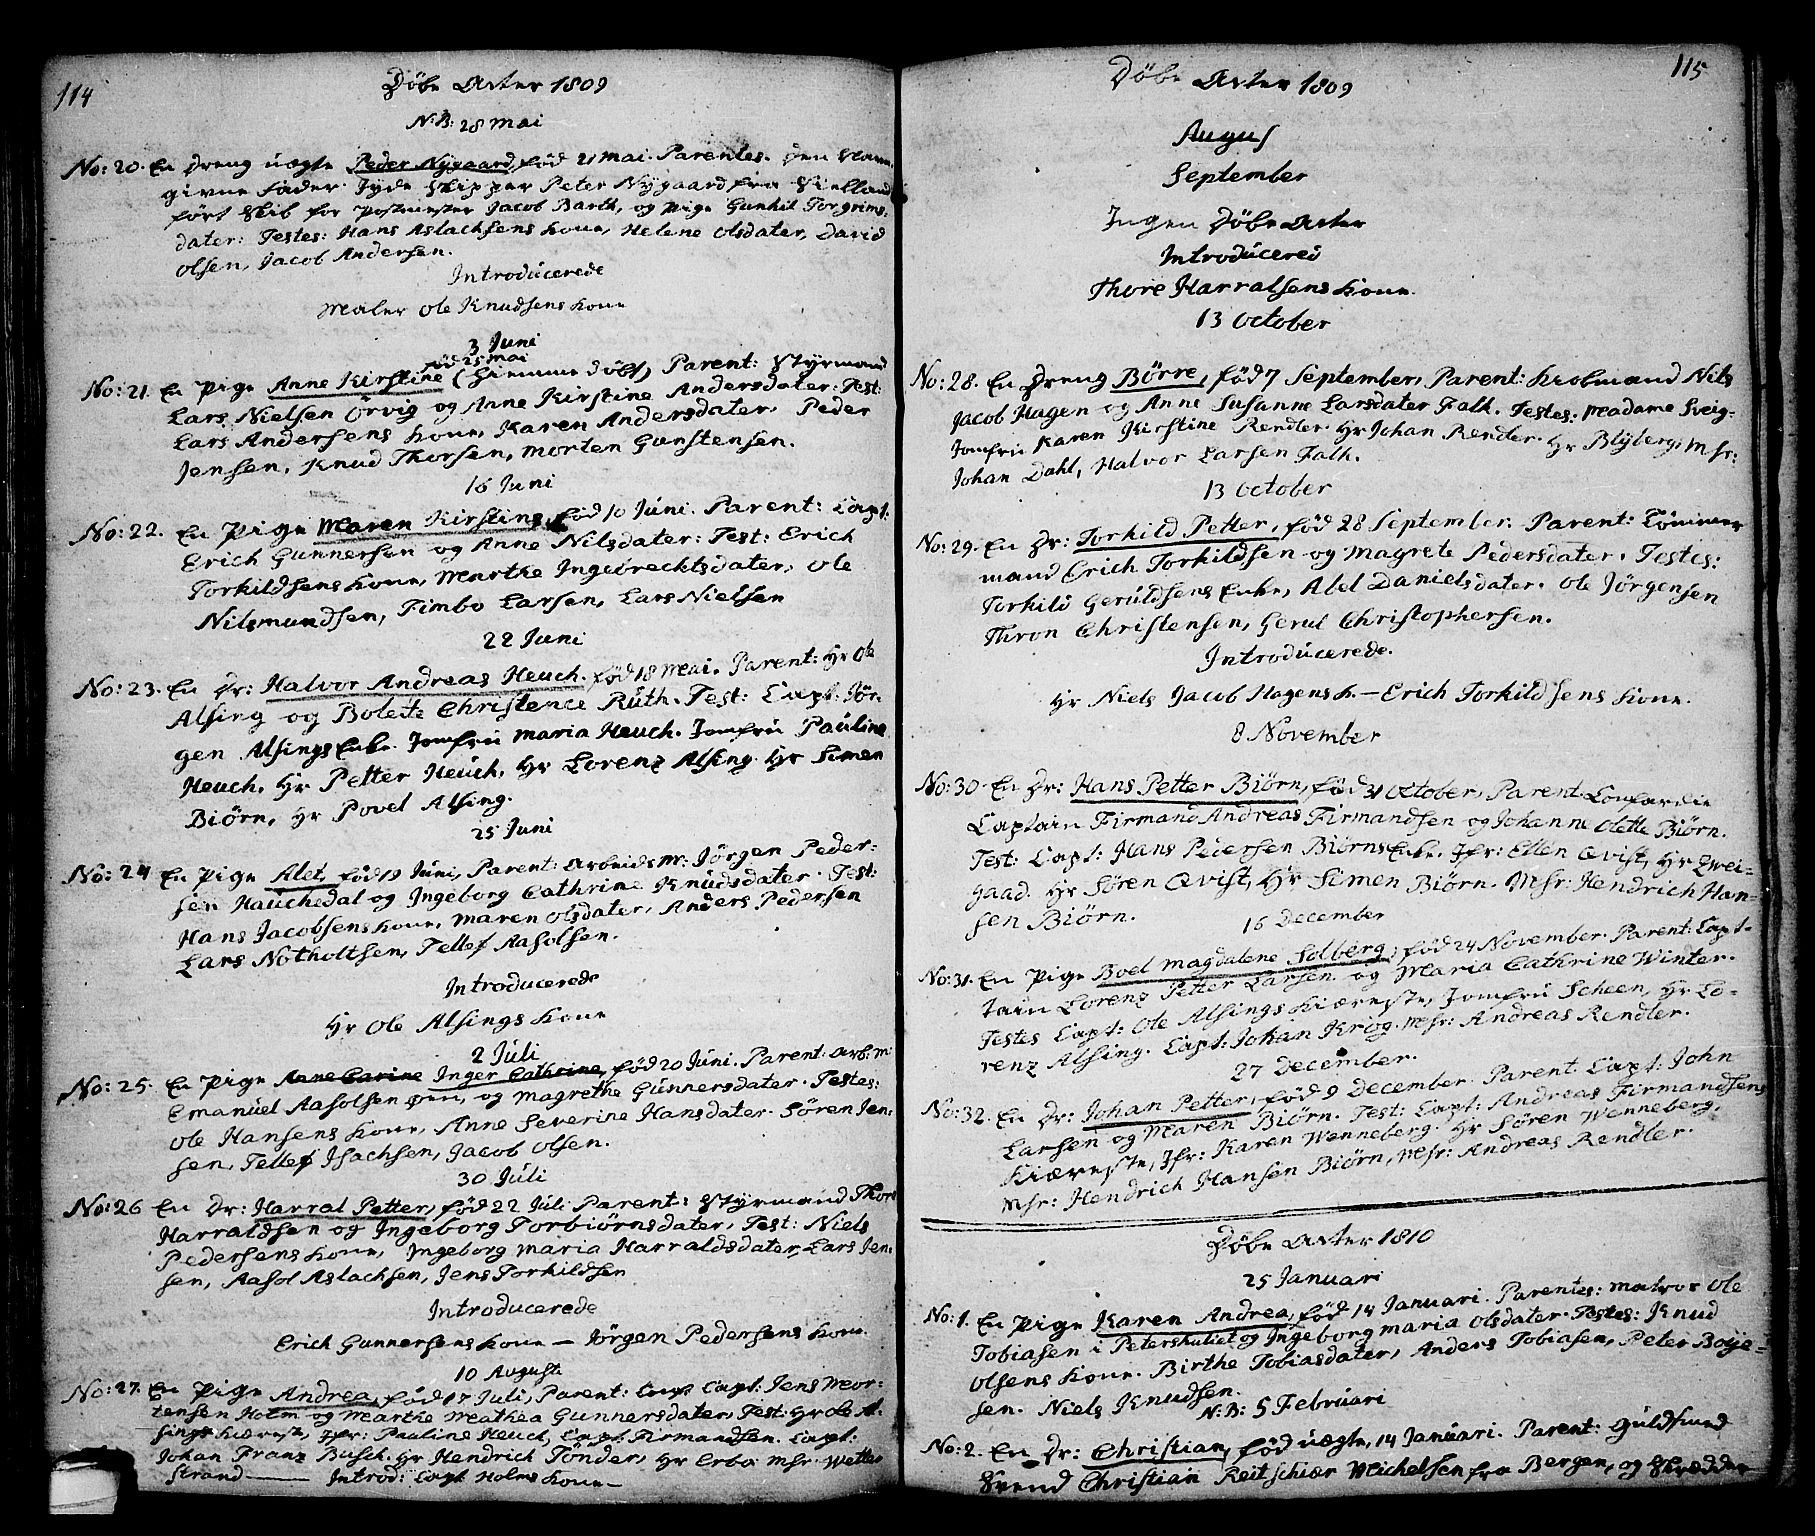 114
Döbe Acter 1809
N:B: 28 Mai
No: 20. En Dreng uægte Peder Nygaard, född 21 Mai. Parentes. Den
givne Fader Jyde Skipper Peter Nygaard fra
fört Skib for Postmester Jacob Barth, og Pige Gunhil Torgrims-
dater: Testes: Hans Aslachsens Kone, Helene Olsdater, David
Olsen, Jacob Andersen.
Introducerede
Maler Ole Knudsens Kone
3 Juni
född 25 Mai
No: 21. En Pige Anne Kirstine (Hiemmedöbt) Parent: Styrmand
Lars Nielsen Örvig og Anne Kirstine Andersdater: Test:
Lars Andersens Kone, Karen Andersdater, Peder
Jensen, Knud Thorsen, Morten Garstensen.
16 Juni
No: 22. En Pige Maren Kirstine, född 10 Juni. Parent: Capt:
Erich Gunnersen og Anne Nilsdater: Test: Erich
Torkildsens Kone, Marthe Ingebrechtsdater, Ole
Nilsmundsen, Timbo Larsen, Lars Nielsen
22 Juni
No: 23. En Dr: Halvor Andreas Heuch, född 18 Mai. Parent: Hr Ole
Alsing og Bolette Christence Ruth. Test: Capt: Jör-
gen Alsings Enke. Jomfru Maria Heuch. Jomfru Pauline
Heuch, Hr Petter Heuch, Hr Lorenz Alsing Hr Simen
Biörn, Hr Povel Alsing.
25 Juni
No: 24 En Pige Alet, född 19 Juni, Parent: Arbeidsm: Jörgen Peder-
sen Hauchedal og Ingeborg Cathrine Knudsdater. Test:
Hans Jacobsens Kone, Maren Olsdater, Anders Pedersen
Lars Notholtsen, Tellef Aasolsen.
Introducerede
Hr Ole Alsings Kone
2 Juli
No: 25. En Pige Anne Carine Inger Cathrine, född 20 Juni. Parent: Arb: m:
Emanuel Aasolsen og Magrethe Gunnersdater. Testes:
Ole Hansens Kone, Anne Severine Hansdater. Sören Jen-
sen, Tellef Isachsen, Jacob Olsen.
30 Juli
No: 26 En Dr: Harral Petter, född 22 Juli Parent: Styrmand Thore
Harraldsen og Ingeborg Torbiörnsdater, Test: Niels
Pedersens Kone, Ingeborg Maria Harraldsdater, Lars Jen-
sen, Aasol Aslachsen, Jens Torkildsen
Introducerede
Erich Gunnersens Kone — Jörgen Pedersens Kone.
10 Augusti
No: 27. En Pige Andrea, född 17 Juli, Parent: Capt: Jens Mor-
tensen Holm og Marthe Mathea Gunnersdater, Test: Hr Ole Al-
sings Kiæreste, Jfr: Pauline Heuch, Capt Firmandsen. Capt:
Johan Franz Busch. Hr Hendrich Tönder, Hr Erbo Msr: Wetter
Strand — Introd: Capt Holms Kone —
115
Döbe Acter 1809
Augus
September
Ingen Döbe Acter
Introducered
Thore Harralsens Kone.
13 October
No: 28. En Dreng Börre, född 7 September, Parent: Kiobmand Nils
Jacob Hagen og Anne Susanne Larsdater Falk. Testes: Madame Sveig-
Jomfru Karen Kirstine Rendler. Hr Johan Rendler. Hr Blyberg, Msr:
Johan Dahl, Halvor Larsen Falk.
13 October
No: 29. En Dr: Torkild Petter, född 28 September. Parent: Tömmer
mand Erich Torkildsen og Magrete Pedersdater. Testes:
Torkild Geruldsens Enke, Abel Danielsdater. Ole Jörgensen
Thron Christensen, Gerul Christophersen.
Introducerede.
Hr Niels Jacob Hagens K. — Erich Torkildsens Kone.
8 November
No: 30. En Dr: Hans Petter Biörn, född 31 October, Parent: Coufardie
Captain Firmand Andreas Firmandsen og Johanne Olette Biörn.
Test: Capt: Hans Pedersen Biörns Enke. Jfr: Ellen Qvist, Hr Zwei-
gaad. Hr Sören Qvist, Hr Simen Biörn. Msr: Hendrich Han-
sen Biörn.
16 December
No: 31. En Pige Boel Magdalene Solberg, född 24 November. Parent: Capt-
tain Lorenz Petter Larsen og Maria Cathrine Winter.
Testes Capt: Ole Alsings Kiæreste, Jomfru Scheen, Hr Lo-
renz Alsing. Capt: Johan Krog. Msr: Andreas Rendler.
27 December.
No: 32. En Dr: Johan Petter, född 9 December. Parent Capt: John
Larsen og Maren Biörn. Test: Capt: Andreas Firmandsens
Kiæreste, Jfr: Karen Wenneberg. Hr Sören Wenneberg.
Msr: Hendrich Hansen Biörn, Msr: Andreas Rendler.
Döbe Acter 1810
25 Januari
No: 1. En Pige Karen Andrea, född 14 Januari. Parentes: Matros Ole
Tobiasen i Petershullet og Ingeborg Maria Olsdater. Testes: Knud
Olsens Kone. Birthe Tobiasdater, Anders Tobiasen, Peter Boyje-
sen. Niels Knudsen.
N:B: 5 Februari
No: 2. En Dr: Christian, född uægte, 14 Januari. Parent: Guldsmed
Svend Christian Reitschiær Michelsen fra Bergen, og Skredder